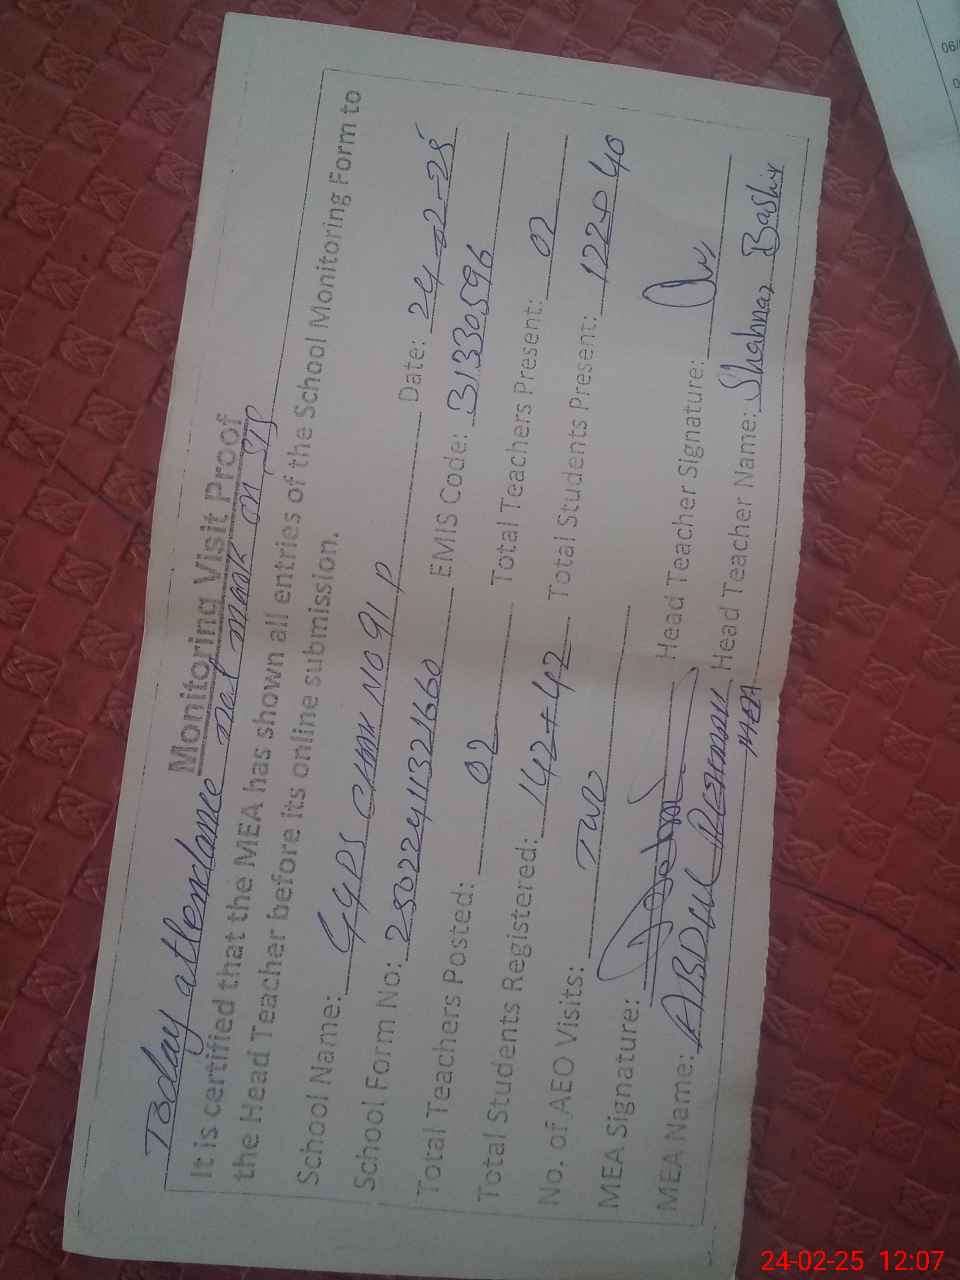 Today attendance not mark on SIS
Monitoring Visit Proof
It is certified that the MEA has shown all entries of the School Monitoring Form to
the Head Teacher before its online submission.
School Name: GGPS CHAK NO 91 P Date: 24-2-25
School Form No: 25022411321660 EMIS Code: 31330596
Total Teachers Posted: 02 Total Teachers Present: 02
Total Students Registered: 142+42 Total Students Present: 122+40
No. of AEO Visits: TWO
MEA Signature: Head Teacher Signature:
MEA Name: ABDUL REHMAN Head Teacher Name: Shahnaz Bashir
MEA
06/
24-02-25 12:07